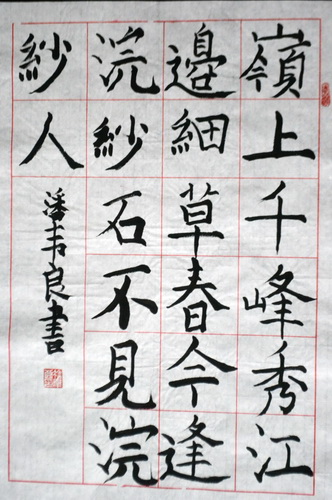 嶺上千峰秀江
邊細草春今逢
浣紗石不見浣
紗人
潘韦良書